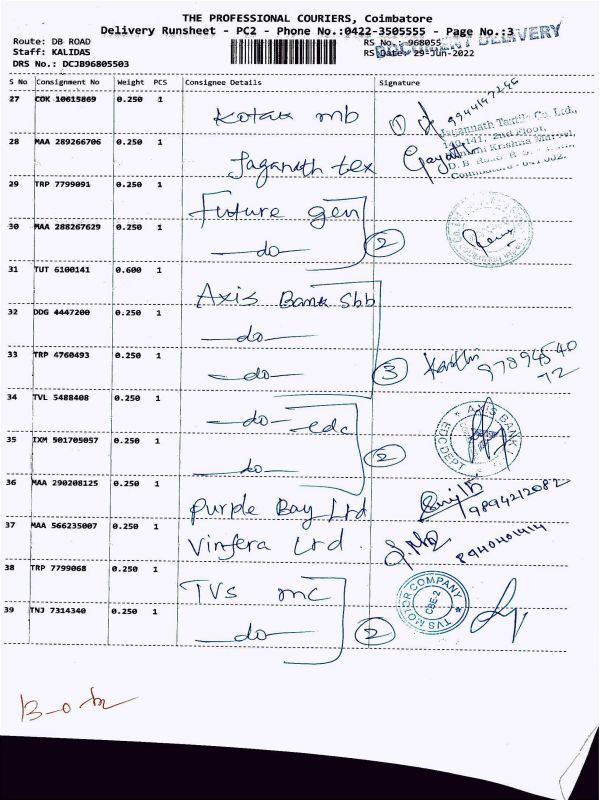 THE PROFESSIONAL COURIERS, Coimbatore
Delivery Runsheet - PC2 - Phone No.:0422-3505555 - Page No.:3
Route: DB ROAD
Staff: KALIDAS
DRS No.: DCJB96805503
RS No.: 968055
RS Date: 29-Jun-2022
DELIVERY
S No Consignment No Weight PCS Consignee Details Signature
27 COK 10615869 0.250 1 Kotak mb
28 MAA 289266706 0.250 1 Jaganath tex ①
Jagannath Textile Co. Ltd.,
140,141, 2nd Floor,
29 TRP 7799091 0.250 1 Future gen
30 MAA 288267629 0.250 1 —do— ②
31 TUT 6100141 0.600 1 Axis Bank Sbb
32 DDG 4447200 0.250 1 —do—
33 TRP 4760493 0.250 1 —do— ③ 97894540
72
34 TVL 5488408 0.250 1 —do— edc
AXIS BANK
EDC DEPT
35 IXM 501705057 0.250 1 —do— ②
36 MAA 290208125 0.250 1 Purple Bay Ltd 9894212082
37 MAA 566235007 0.250 1 Vinfera Ltd. 8940401414
38 TRP 7799068 0.250 1 TVS mc
TVS MOTOR COMPANY
CBE-2
39 TNJ 7314340 0.250 1 —do— ②